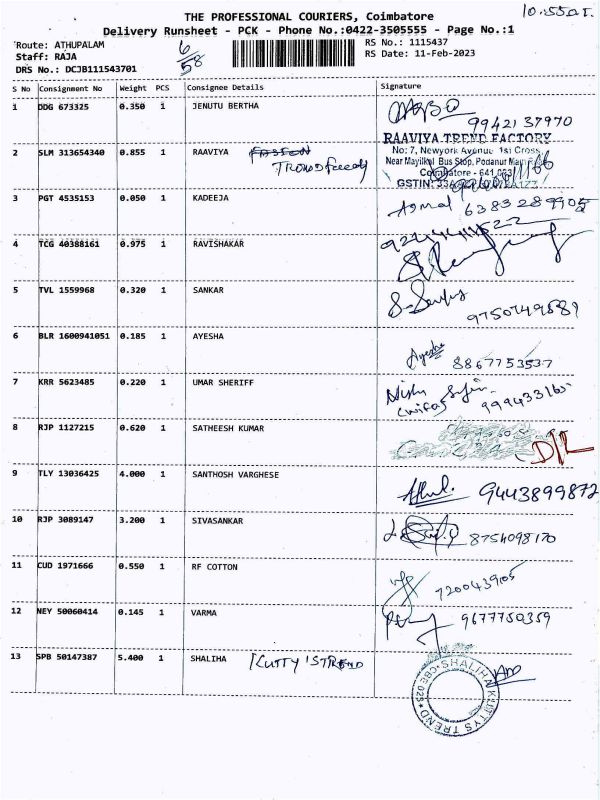 10.55AT.
THE PROFESSIONAL COURIERS, Coimbatore
Delivery Runsheet - PCK - Phone No.:0422-3505555 - Page No.:1
Route: ATHUPALAM
Staff: RAJA
DRS No.: DCJB111543701
6/58
RS No.: 1115437
RS Date: 11-Feb-2023
S No Consignment No Weight PCS Consignee Details Signature
1 DDG 673325 0.350 1 JENUTU BERTHA 9942137970
RAAVIYA TREND FACTORY
No: 7, Newyork Avenue 1st Cross,
Near Mayilkal Bus Stop, Podanur Main Road
Coimbatore - 641 023
GSTIN:
2 SLM 313654340 0.855 1 RAAVIYA
3 PGT 4535153 0.050 1 KADEEJA Asmal 6383289905
4 TCG 40388161 0.975 1 RAVISHAKAR
5 TVL 1559968 0.320 1 SANKAR 9750749589
6 BLR 1600941051 0.185 1 AYESHA Ayesha 8867753537
7 KRR 5623485 0.220 1 UMAR SHERIFF
(wife)
8 RJP 1127215 0.620 1 SATHEESH KUMAR D/L
9 TLY 13036425 4.000 1 SANTHOSH VARGHESE 9443899872
10 RJP 3089147 3.200 1 SIVASANKAR 8754098170
11 CUD 1971666 0.550 1 RF COTTON 720043905
12 NEY 50060414 0.145 1 VARMA 9677750359
13 SPB 50147387 5.400 1 SHALIHA KUTTY'S TREND
SHALIHA KUTTYS TREND